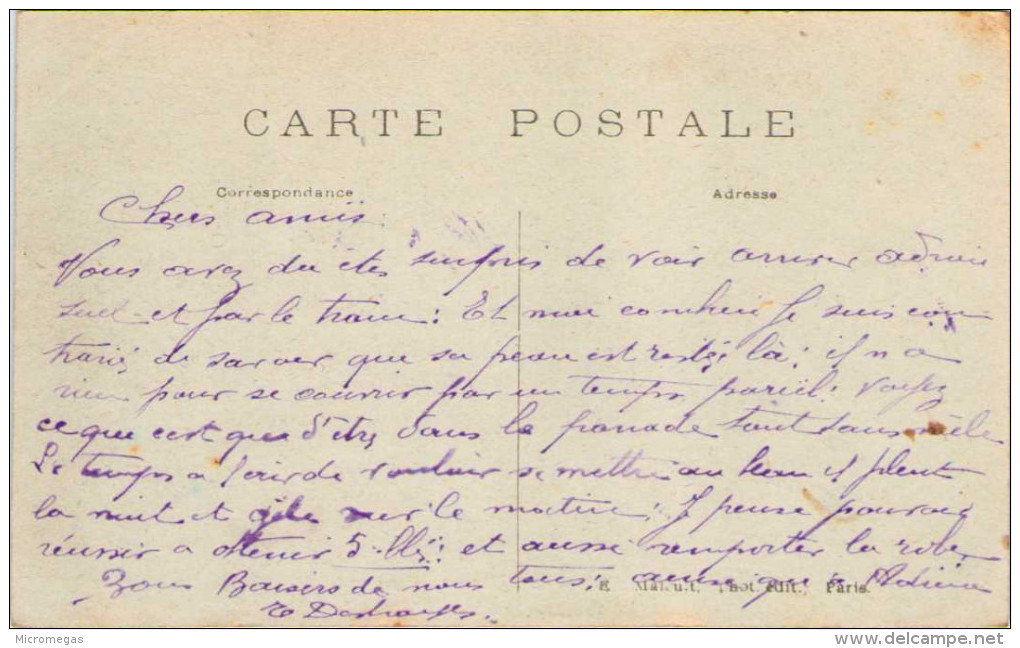 CARTE POSTALE
Correspondance
Adresse
Chers amis
Vous avez du êtes surpris de voir arriver adrien
seul et par le train: Et moi combien Je suis con
trarié de savoir que sa peau est restée là; il n a
rien pour se couvrir par un temps pareil. voyez
ce que c'est que d'être dans la panade tout s'en mêle
Le temps a l'air de vouloir se mettre au beau il pleut
la nuit et gèle sur le matin; Je pense pouvoir
réussir a obtenir 5 et aussi remporter la
Bons Baisers de nous tous; que Adrien
E. Malcuit, Phot. édit., Paris.
Micromegas
delcampe.net